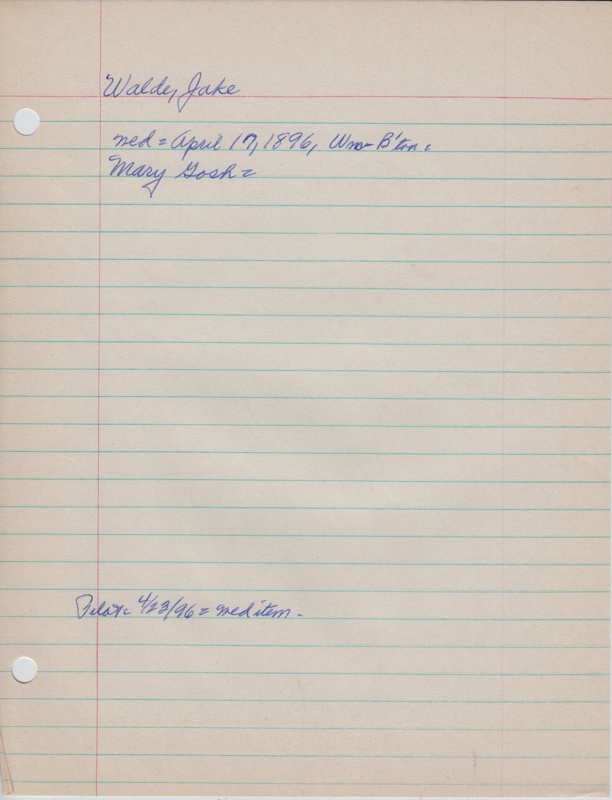 Walde, Jake
med = April 17, 1896, Wm B'ton =
Mary Gosh =
Pilot = 4/23/96 = med item -